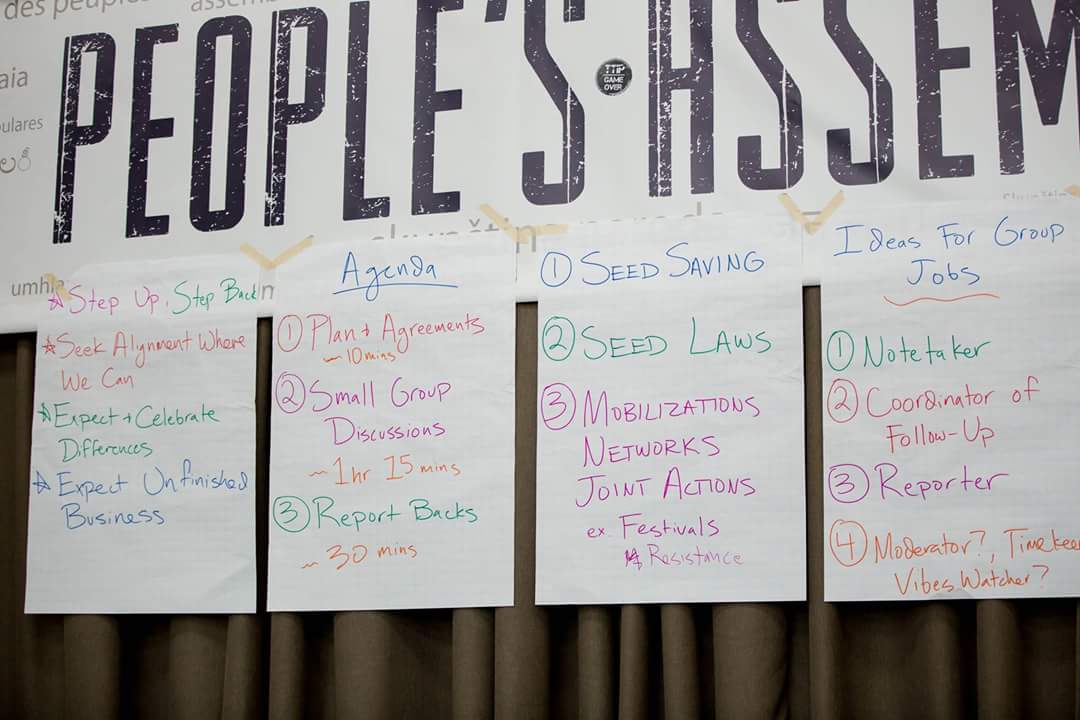 des peuples
assem
PEOPLE'S ASSEM
TTIP
GAME
OVER
aia
ulares
umhla
☆ Step Up, Step Back
☆ Seek Alignment Where
We Can
☆ Expect + Celebrate
Differences
☆ Expect Unfinished
Business
Agenda
① Plan + Agreements
~ 10 mins
② Small Group
Discussions
~ 1 hr 15 mins
③ Report Backs
~ 30 mins
① SEED SAVING
② SEED LAWS
③ MOBILIZATIONS
NETWORKS
JOINT ACTIONS
ex. Festivals
Resistance
Ideas For Group
Jobs
① Notetaker
② Coordinator of
Follow-Up
③ Reporter
④ Moderator?, Timekee
Vibes Watcher?